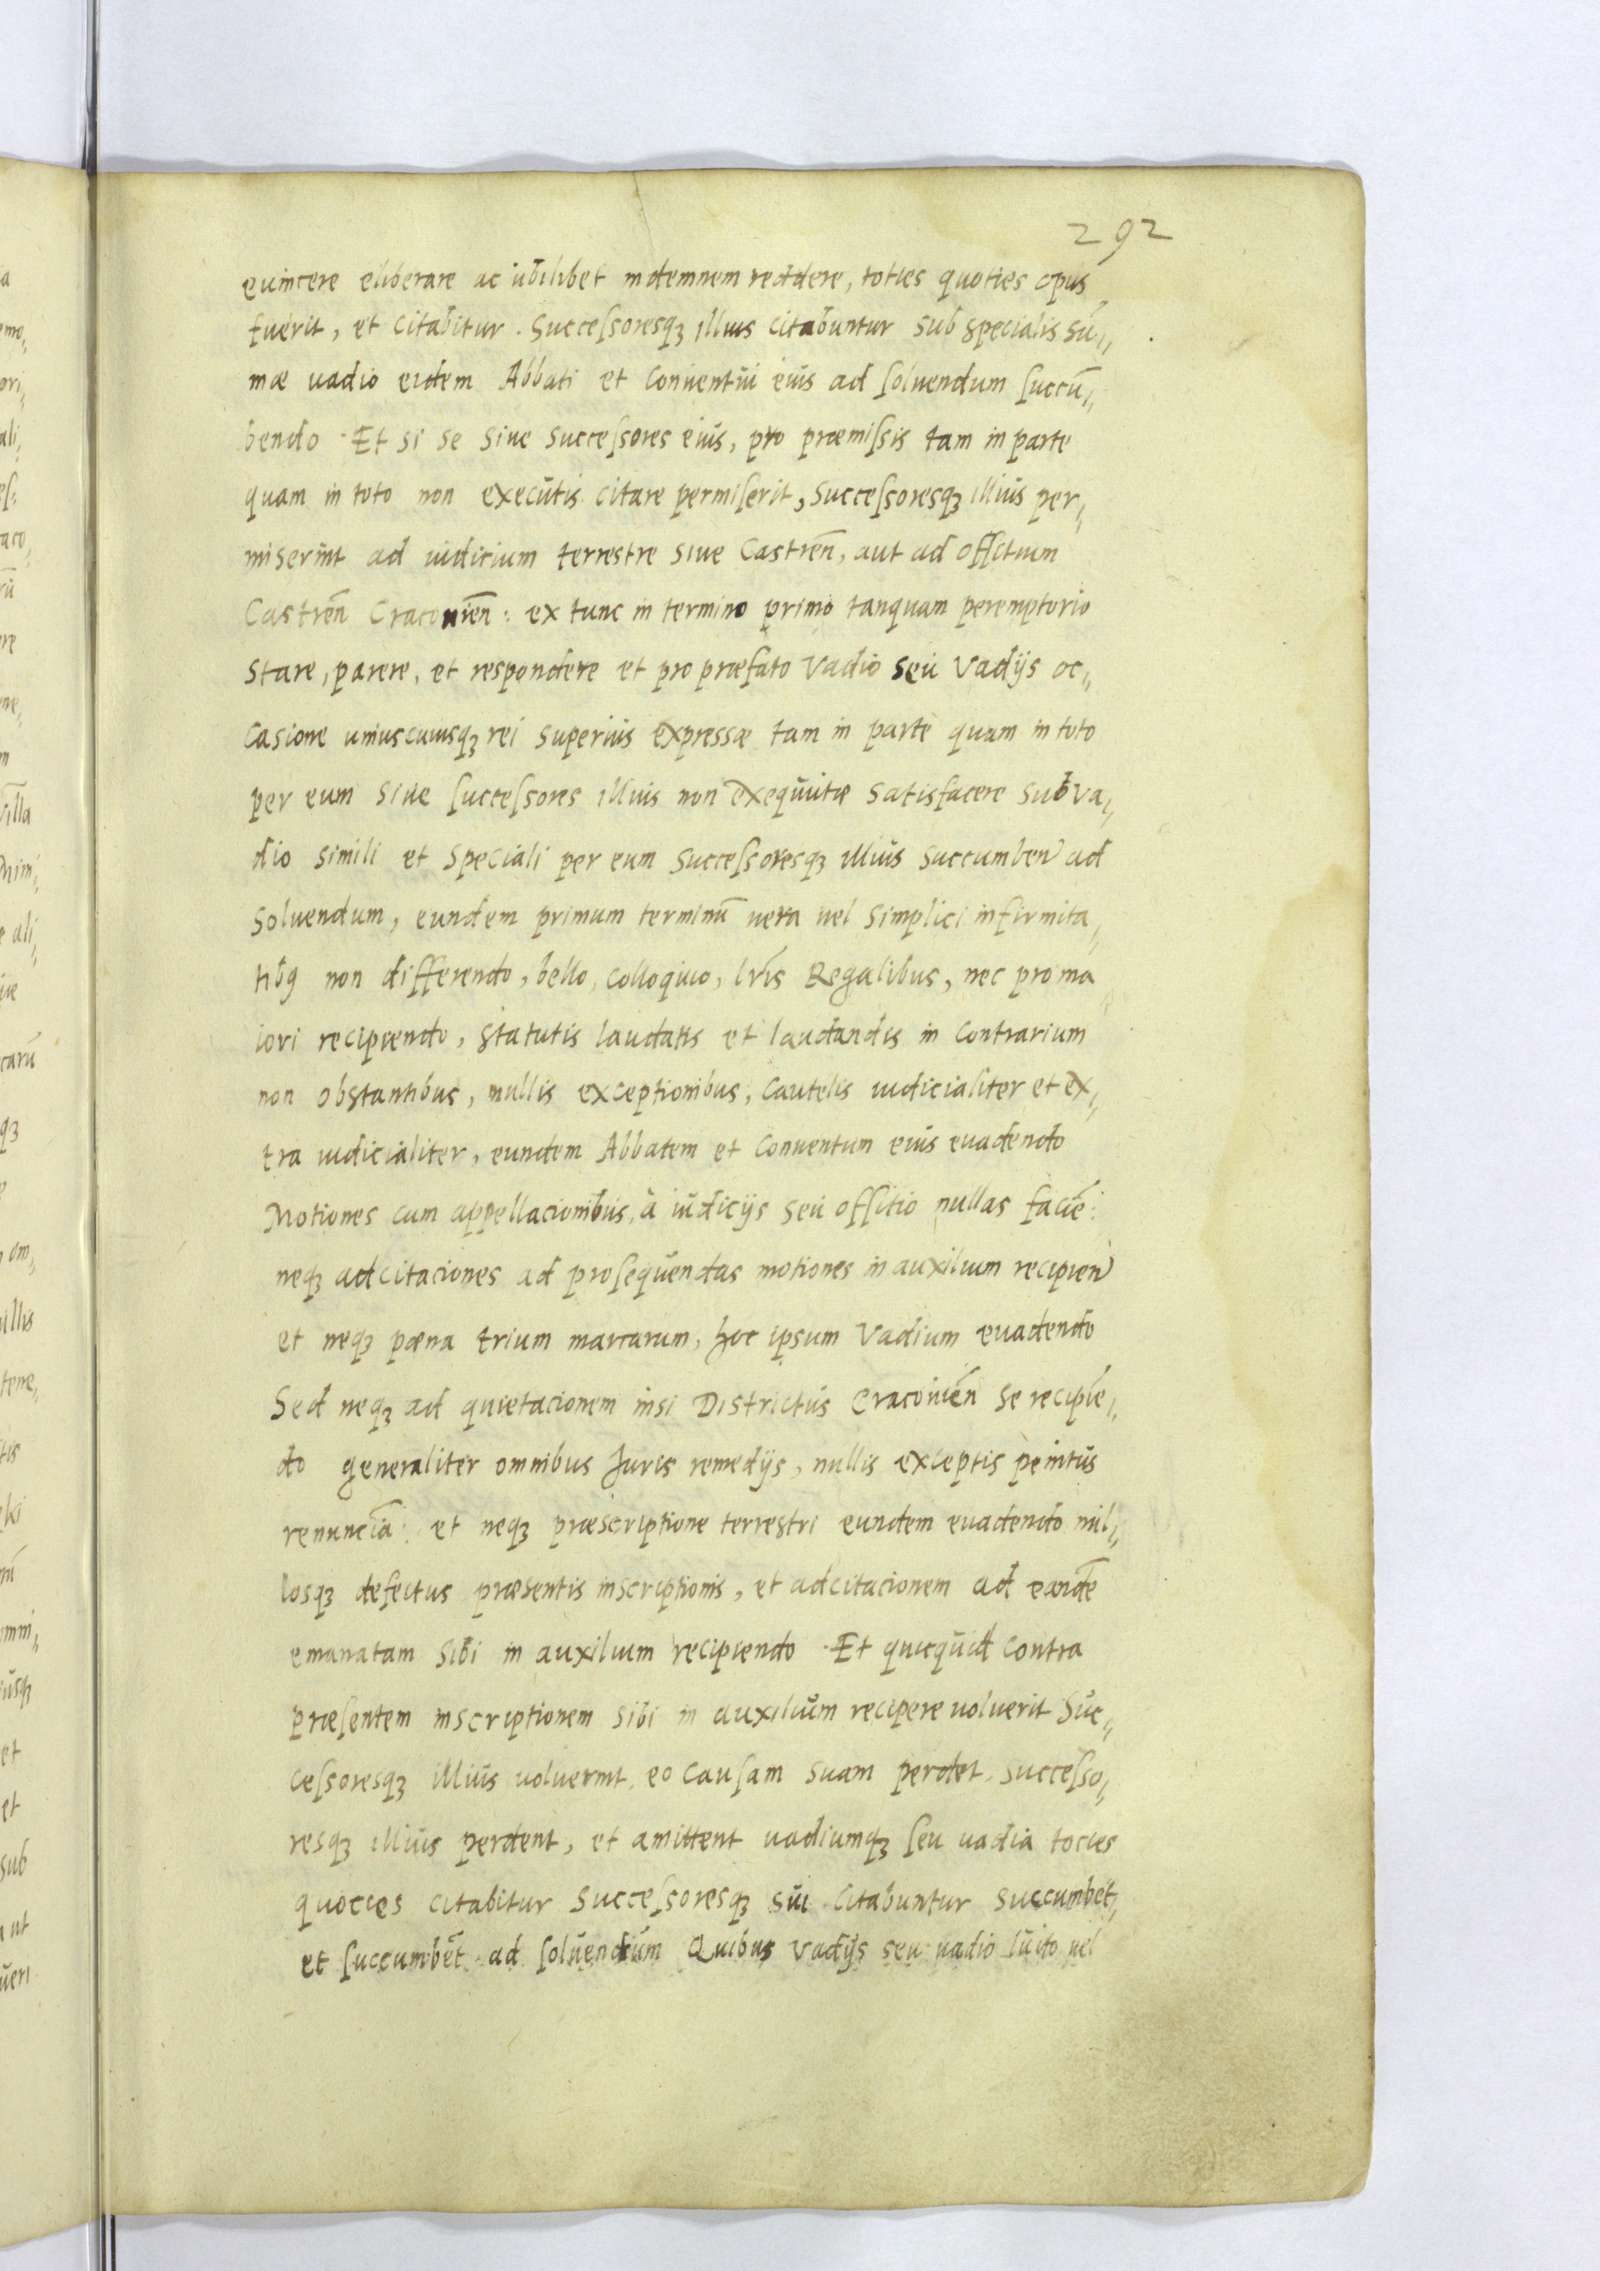 292
euincere eliberare ac ubilibet indemnem reddere, toties quoties opus
fuerit, et citabitur. Succeſsoresqꝫ illius citabuntur sub specialis sū⸗
mæ uadio eidem Abbati et Conuentui eius ad ſoluendum ſuccū⸗
bendo. Et si se siue succeſsores eius, pro præmiſsis tam in parte
quam in toto non executis citare permiſerit, succeſsoresqꝫ illius per⸗
miserint ad iudicium terrestre siue Castreñ, aut ad offitium
Castreñ Cracouieñ: ex tunc in termino primo tanquam peremptorio
stare, parere, et respondere et pro præfato Vadio seu Vadijs oc⸗
casione uniuscuiusqꝫ rei superius expressæ tam in parte quam in toto
per eum siue ſucceſsores illius non exequutæ satisfacere sub va⸗
dio simili et speciali per eum succeſsoresqꝫ illius succumbeñ ad
soluendum, eundem primum terminū uera uel simplici infirmita⸗
tibꝯ non differendo, bello, colloquio, lr̃is Regalibus, nec pro ma
iori recipiendo, statutis laudatis et laudandis in contrarium
non obstantibus, nullis exceptionibus, cautelis iudicialiter et ex⸗
tra iudicialiter, eundem Abbatem et Conuentum eius euadendo
Motiones cum appellacionibus, à iudicijs seu offitio nullas facień:
neqꝫ adcitaciones ad proſequendas motiones in auxilium recipień
et neqꝫ pæna trium marcarum, hoc ipsum Vadium euadendo
Sed neqꝫ ad quietacionem nisi Districtus Cracouień se recipiē⸗
do generaliter omnibus Juris remedijs, nullis exceptis penitus
renuncia: et neqꝫ præscriptione terrestri eundem euadendo nul⸗
losqꝫ defectus præsentis inscriptionis, et adcitacionem ad eandē
emanatam sibi in auxilium recipiendo. Et quicquid contra
præſentem inscriptionem sibi in auxilium recipere uoluerit Suc⸗
ceſsoresqꝫ illius uoluerint, eo cauſam suam perdet, succeſso⸗
resqꝫ illius perdent, et amittent uadiumqꝫ ſeu uadia tocies
quocies citabitur Succeſsoresqꝫ sui citabuntur succumbet,
et ſuccumbēt ad ſoluendum Quibus Vadijs seu uadio luito uel